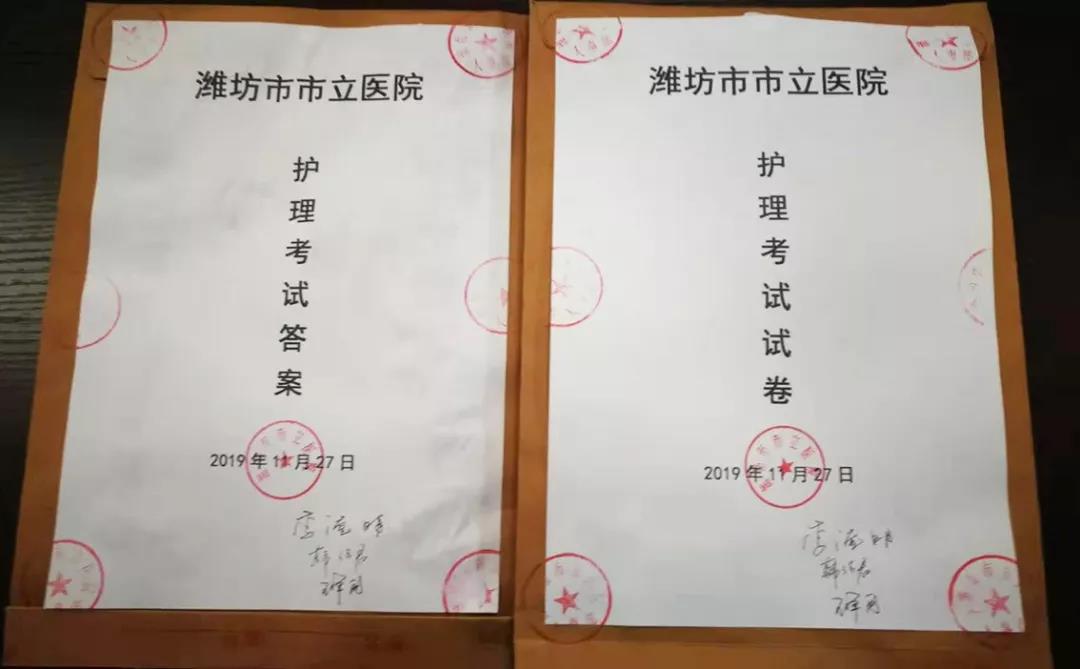 潍坊市市立医院
护理考试答案
2019年11月27日
潍坊市市立医院
护理考试试卷
2019年11月27日